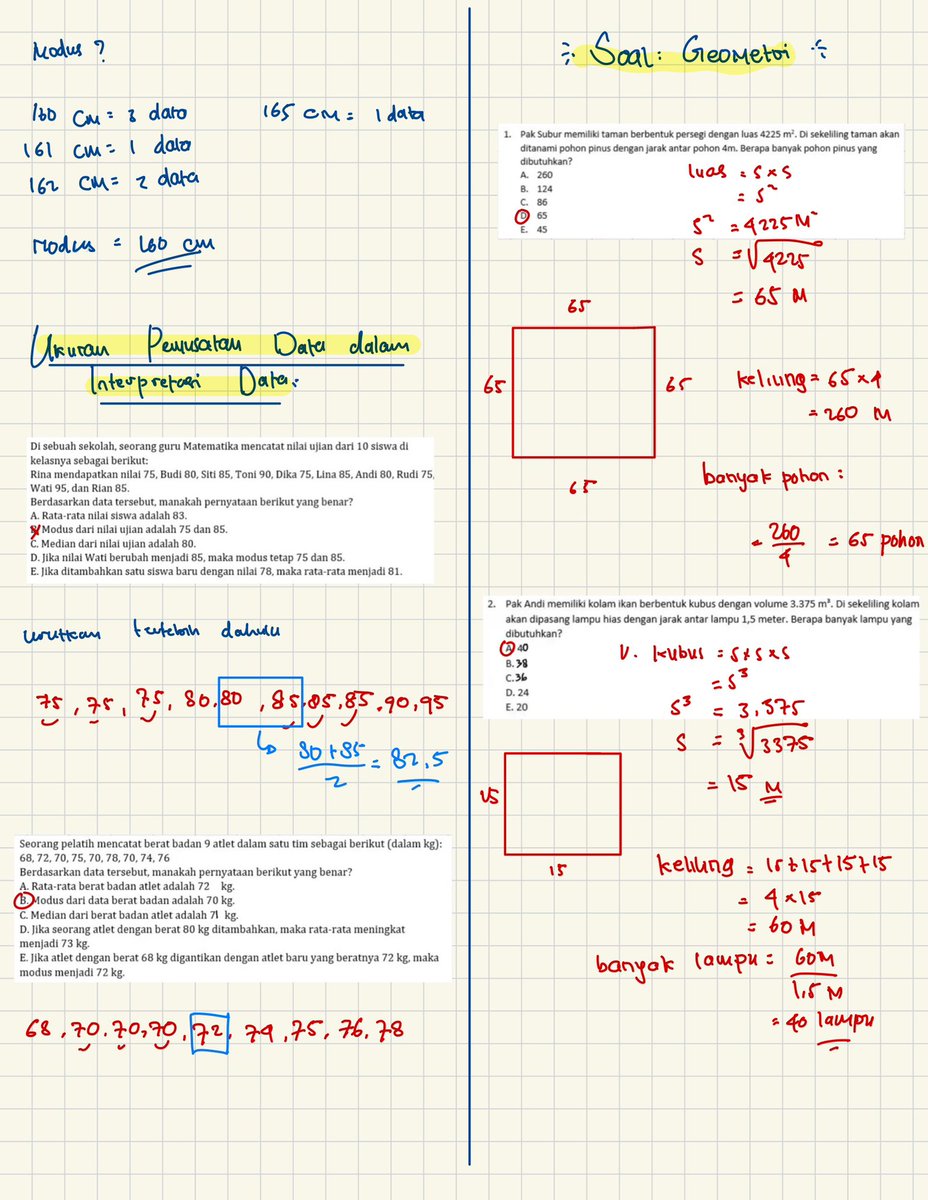 Modus ?
160 cm = 3 data
165 cm = 1 data
161 cm = 1 data
162 cm = 2 data
Modus = 160 cm
Ukuran Pemusatan Data dalam
Interpretasi Data:
Di sebuah sekolah, seorang guru Matematika mencatat nilai ujian dari 10 siswa di
kelasnya sebagai berikut:
Rina mendapatkan nilai 75, Budi 80, Siti 85, Toni 90, Dika 75, Lina 85, Andi 80, Rudi 75,
Wati 95, dan Rian 85.
Berdasarkan data tersebut, manakah pernyataan berikut yang benar?
A. Rata-rata nilai siswa adalah 83.
B. Modus dari nilai ujian adalah 75 dan 85.
C. Median dari nilai ujian adalah 80.
D. Jika nilai Wati berubah menjadi 85, maka modus tetap 75 dan 85.
E. Jika ditambahkan satu siswa baru dengan nilai 78, maka rata-rata menjadi 81.
urutkan terlebih dahulu
75, 75, 75, 80, 80, 85, 85, 85, 90, 95
80 + 85
2
= 82,5
Seorang pelatih mencatat berat badan 9 atlet dalam satu tim sebagai berikut (dalam kg):
68, 72, 70, 75, 70, 78, 70, 74, 76
Berdasarkan data tersebut, manakah pernyataan berikut yang benar?
A. Rata-rata berat badan atlet adalah 72 kg.
B. Modus dari data berat badan adalah 70 kg.
C. Median dari berat badan atlet adalah 71 kg.
D. Jika seorang atlet dengan berat 80 kg ditambahkan, maka rata-rata meningkat
menjadi 73 kg.
E. Jika atlet dengan berat 68 kg digantikan dengan atlet baru yang beratnya 72 kg, maka
modus menjadi 72 kg.
68, 70, 70, 70, 72, 74, 75, 76, 78
Soal: Geometri
1. Pak Subur memiliki taman berbentuk persegi dengan luas 4225 m². Di sekeliling taman akan
ditanami pohon pinus dengan jarak antar pohon 4m. Berapa banyak pohon pinus yang
dibutuhkan?
A. 260
B. 124
C. 86
D. 65
E. 45
luas = s x s
= s²
s² = 4225 m²
s = √4225
= 65 m
65
65
65
65
keliling = 65 x 4
= 260 m
banyak pohon :
= 260
4
= 65 pohon
2. Pak Andi memiliki kolam ikan berbentuk kubus dengan volume 3.375 m³. Di sekeliling kolam
akan dipasang lampu hias dengan jarak antar lampu 1,5 meter. Berapa banyak lampu yang
dibutuhkan?
A. 40
B. 38
C. 36
D. 24
E. 20
V. kubus = s x s x s
= s³
s³ = 3.375
s = ³√3375
= 15 m
15
15
keliling = 15 + 15 + 15 + 15
= 4 x 15
= 60 m
banyak lampu = 60 m
1,5 m
= 40 lampu